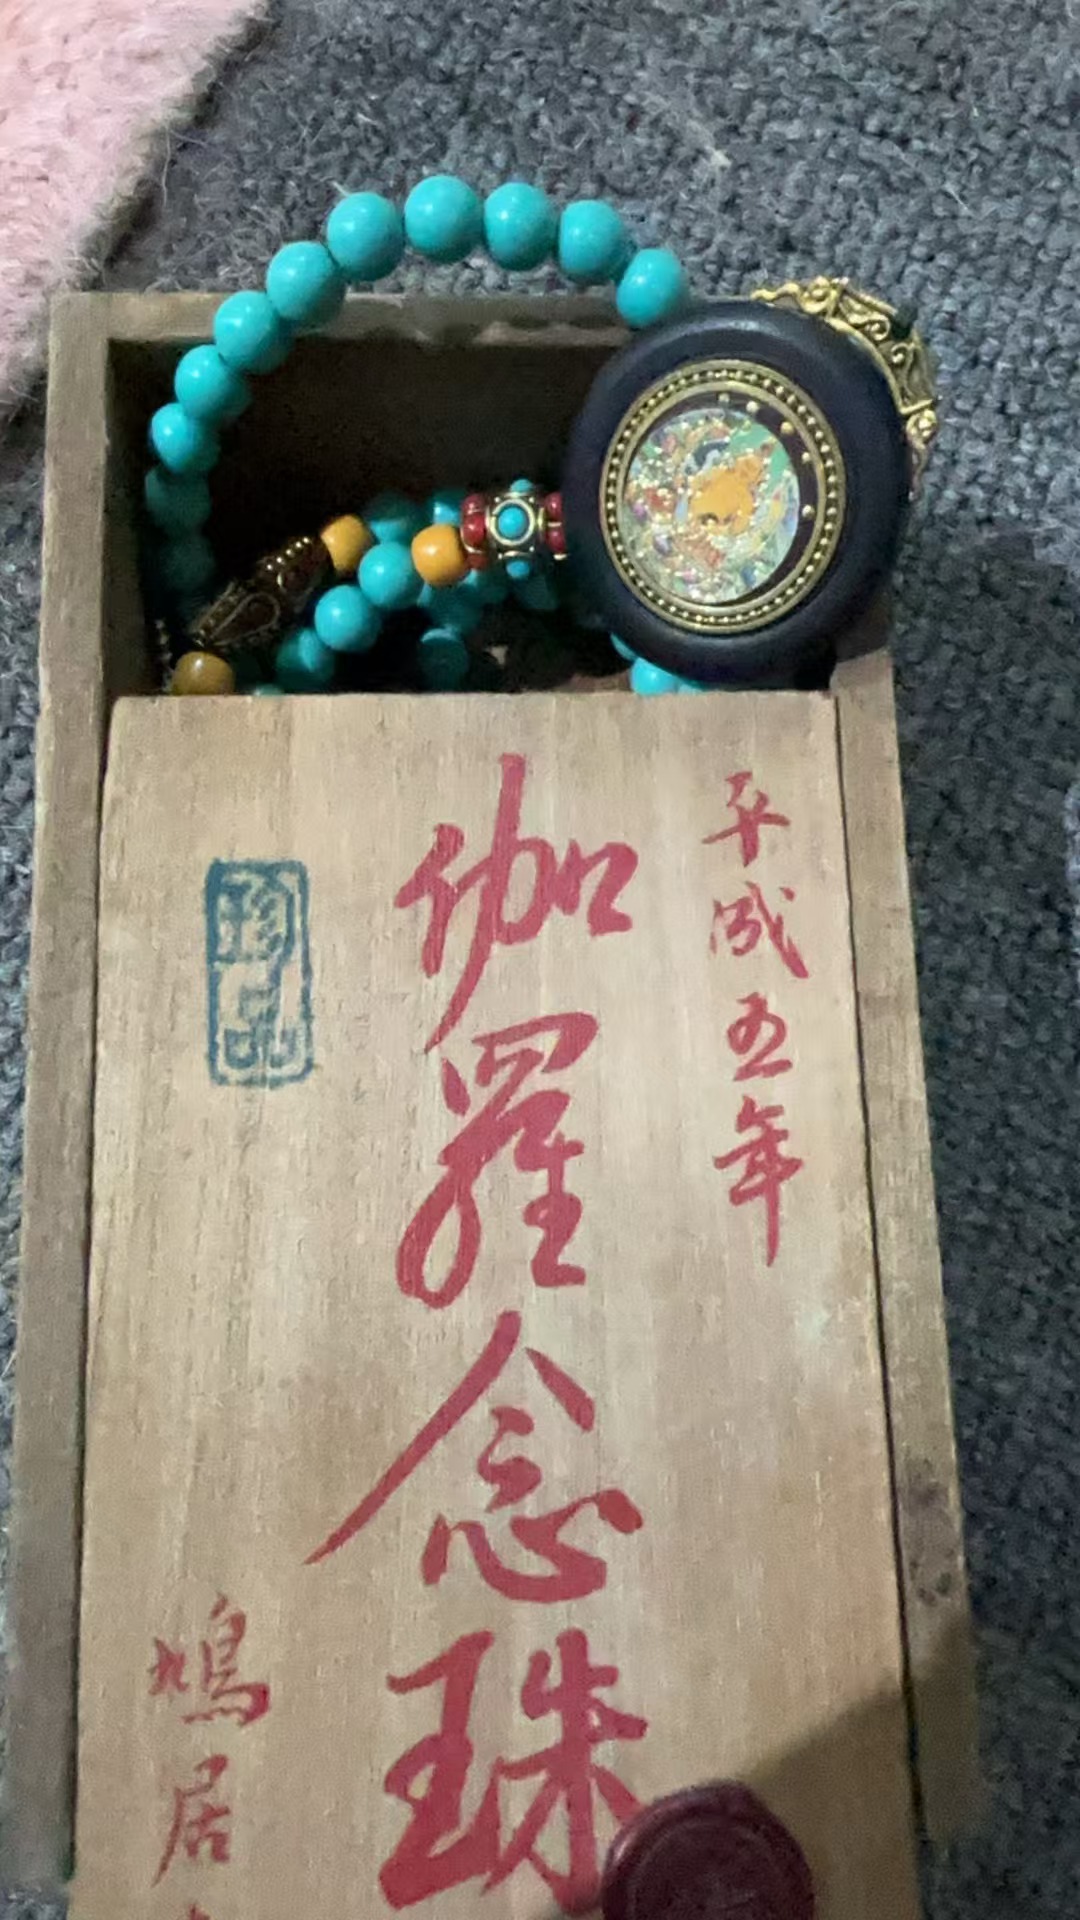 平成五年
伽羅念珠
珍品
鳩居